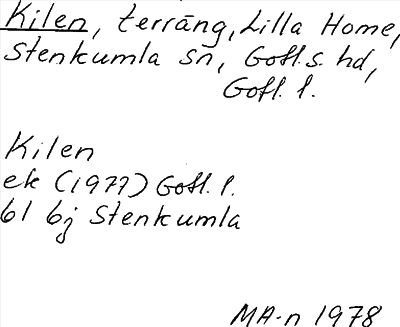 Kilen, terräng, Lilla Home,
Stenkumla sn, Gotl. s. hd,
Gotl. l.
Kilen
ek (1977) Gotl. l.
bl 6j Stenkumla
MA-n 1978